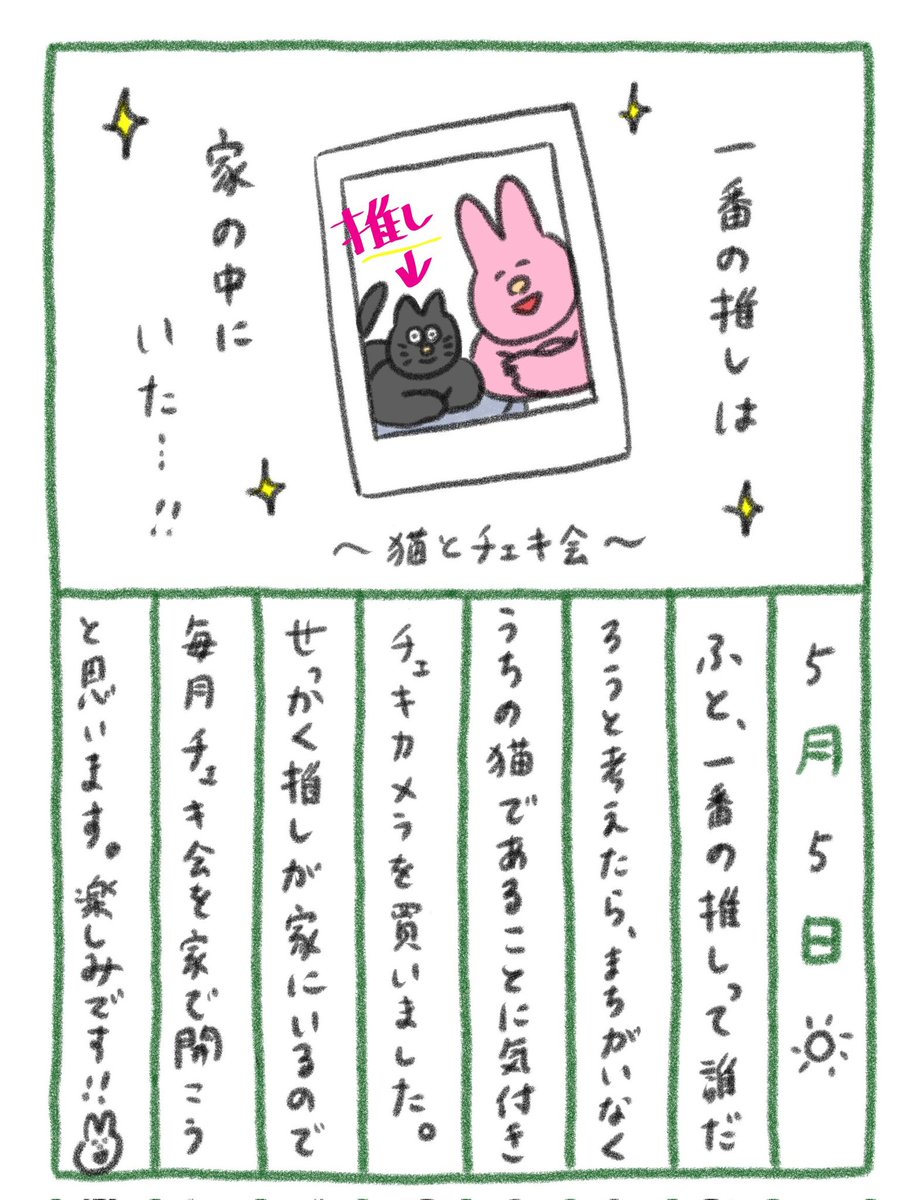 一番の推しは
推し
家の中に
いた…!!
〜猫とチェキ会〜
5月5日
ふと、一番の推しって誰だ
ろうと考えたら、まちがいなく
うちの猫であることに気付き
チェキカメラを買いました。
せっかく推しが家にいるので
毎月チェキ会を家で開こう
と思います。楽しみです!!